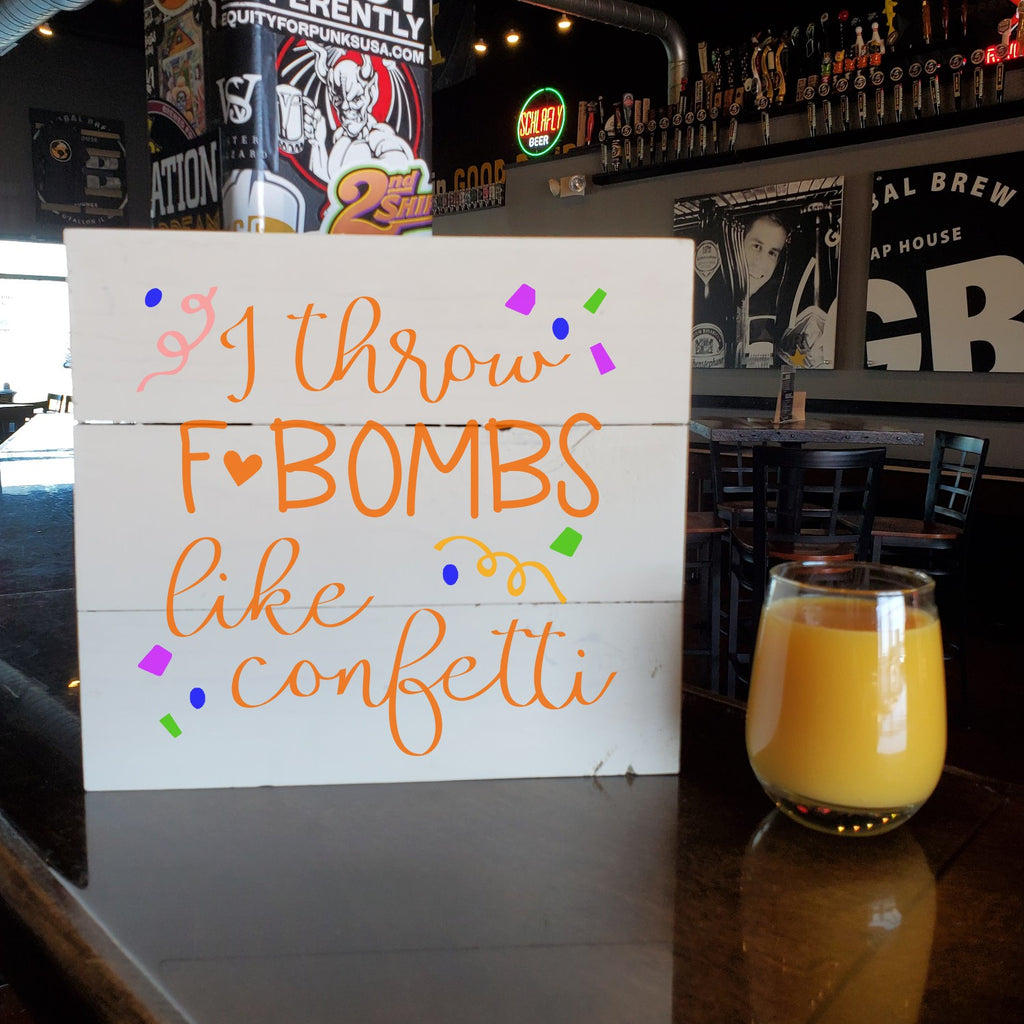 ERENTLY
EQUITYFORPUNKSUSA.COM
2nd
SHIF
SCHLAFLY
BEER
ATION
GOOD
BAL BREW
AP HOUSE
GB
O'FALLON, IL
I throw
F♥BOMBS
like
confetti